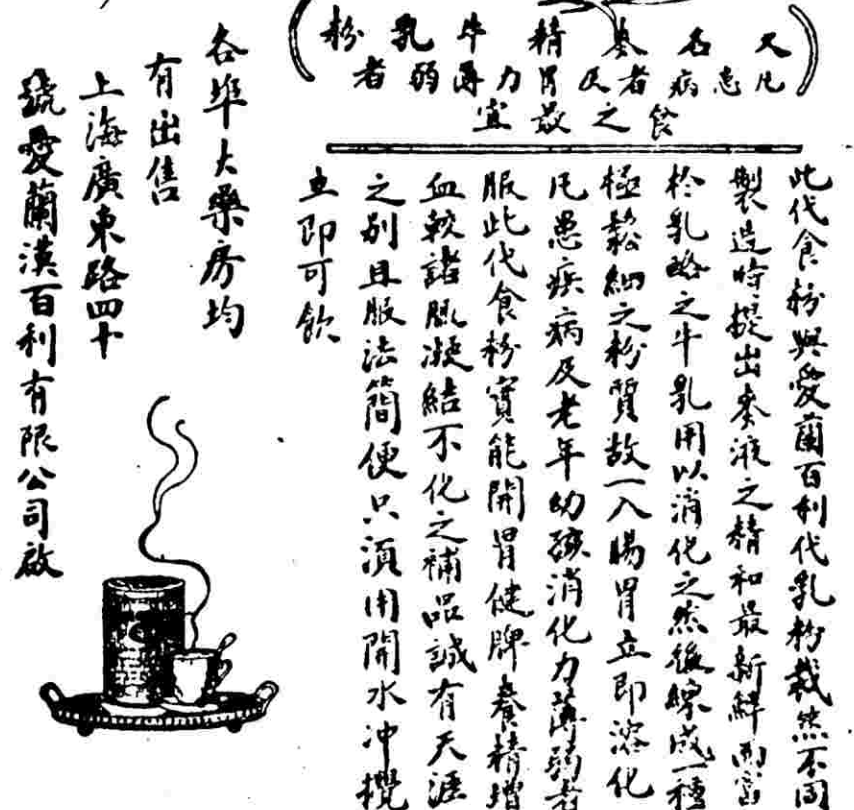 又名麥精牛乳粉
凡患病者及胃力薄弱者
食之最宜
此代食粉與愛蘭百利代乳粉截然不同
製造時提出麥液之精和最新鮮而富
於乳酪之牛乳用以消化之然後煉成一種
極鬆細之粉質故一入腸胃立即溶化
凡患疾病及老年幼孩消化力薄弱者
服此代食粉實能開胃健脾養精增
血較諸凝結不化之補品誠有天涯
之别且服法簡便只須用開水冲攪
立即可飲
各埠大藥房均
有出售
上海廣東路四十
號愛蘭漢百利有限公司啟